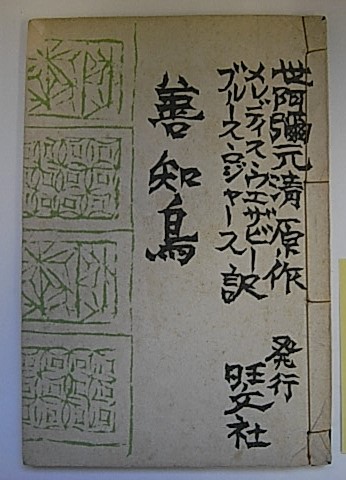 世阿彌元清原作
メレディス・ウェザビー
ブルース・ロジャース訳
善知鳥
発行
旺文社